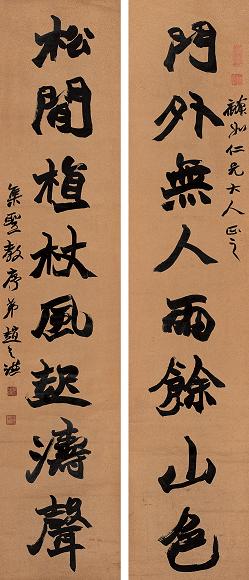 仁兄大人正之
門外無人雨餘山色
松間植杖風起濤聲
集聖教序弟趙之